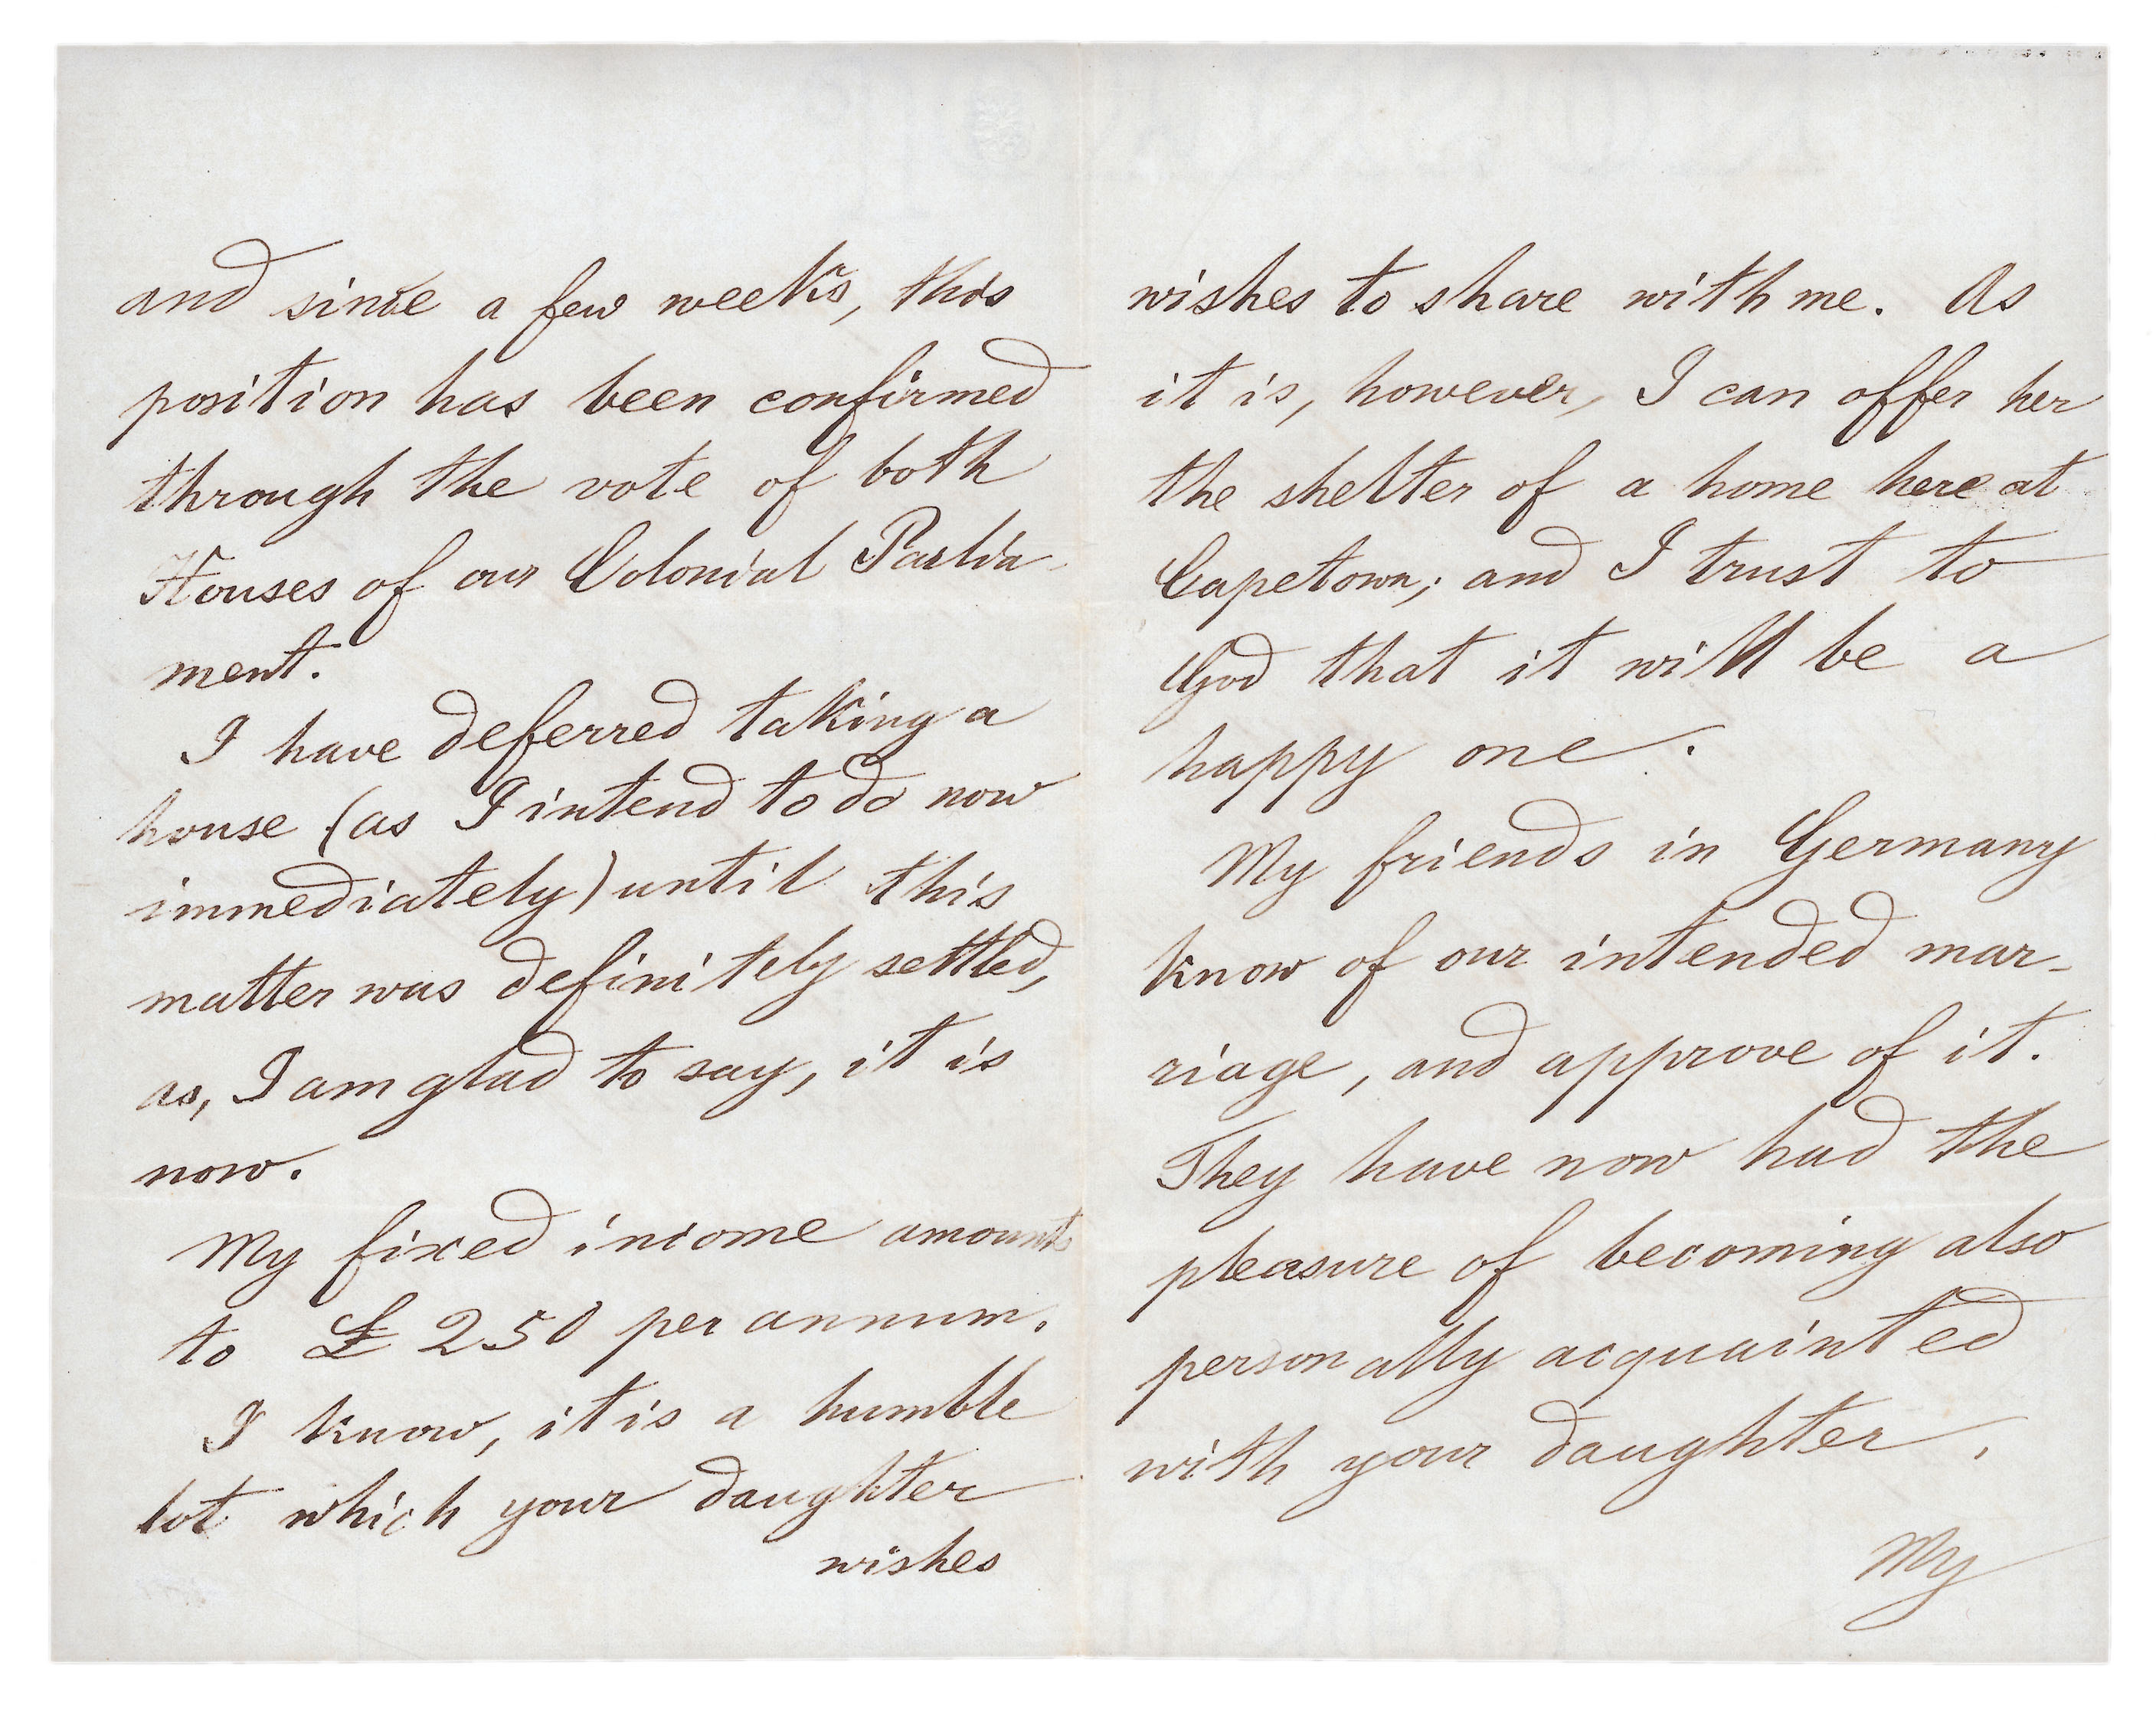 and since a few weeks, this
position has been confirmed
through the vote of both
Houses of our Colonial Parlia-
ment.
I have deferred taking a
house (as I intend to do now
immediately) until this
matter was definitely settled,
as, I am glad to say, it is
now.
My fixed income amounts
to £ 250 per annum.
I know, it is a humble
lot which your daughter
wishes
wishes to share with me. As
it is, however, I can offer her
the shelter of a home here at
Capetown; and I trust to
God that it will be a
happy one.
My friends in Germany
know of our intended mar-
riage, and approve of it.
They have now had the
pleasure of becoming also
personally acquainted
with your daughter.
My